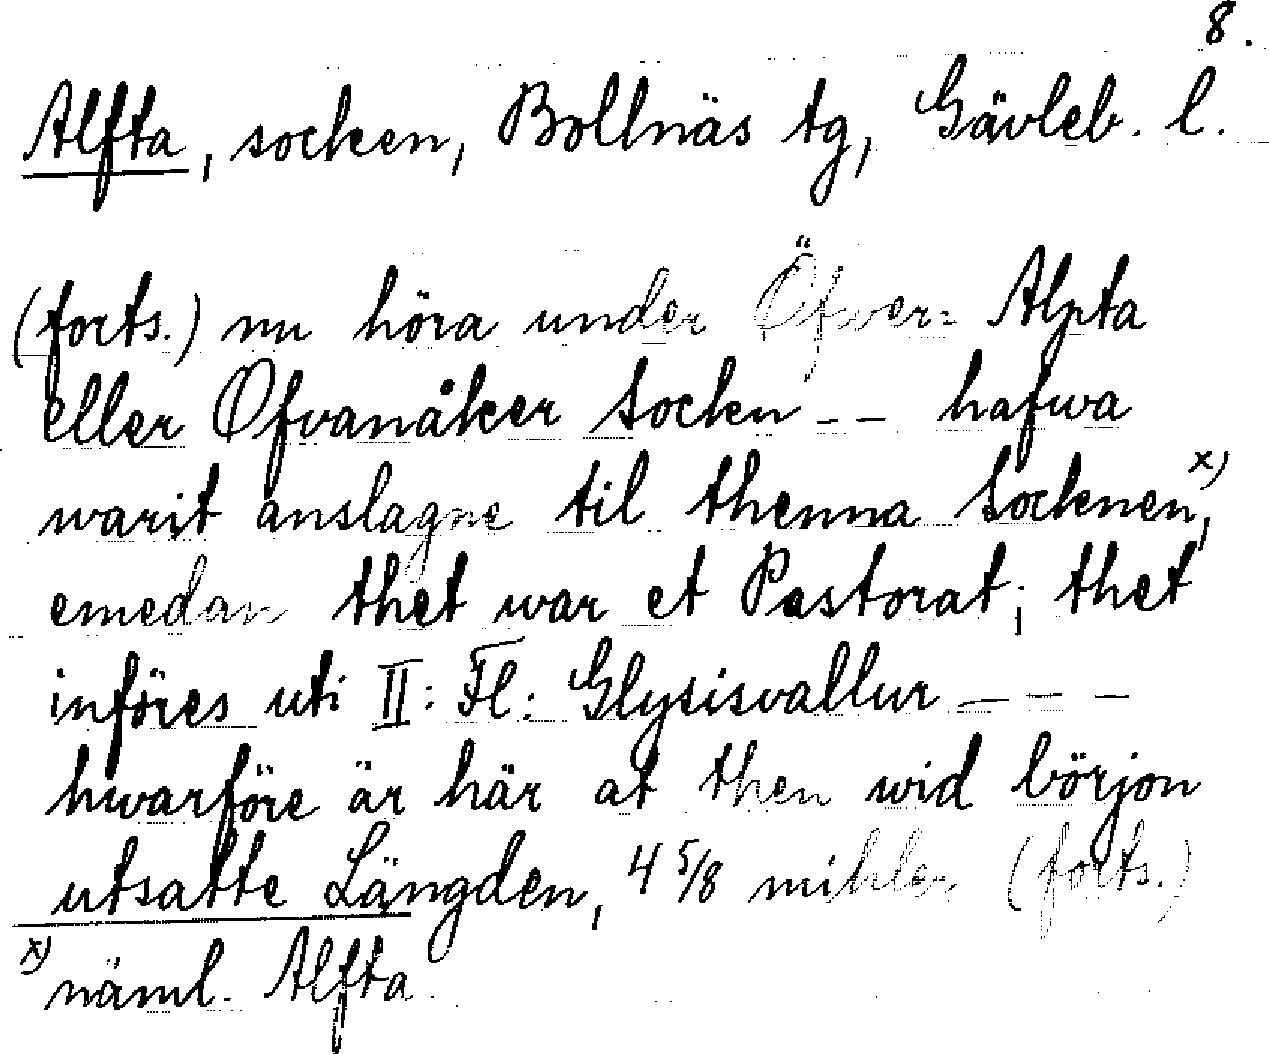 8.
Alfta, socken, Bollnäs tg, Gävleb. l.
(forts.) nu höra under Öfwer= Alpta
eller Ofvanåker Socken -- hafwa
warit anslagne til thenna Socknen,x)
emedan thet war et Pastorat; thet
införes uti II: Fl: Glysisvallur ---
hwarföre är här at then wid börjon
utsatte Längden, 4 5/8 mihler (forts.)
x) näml. Alfta